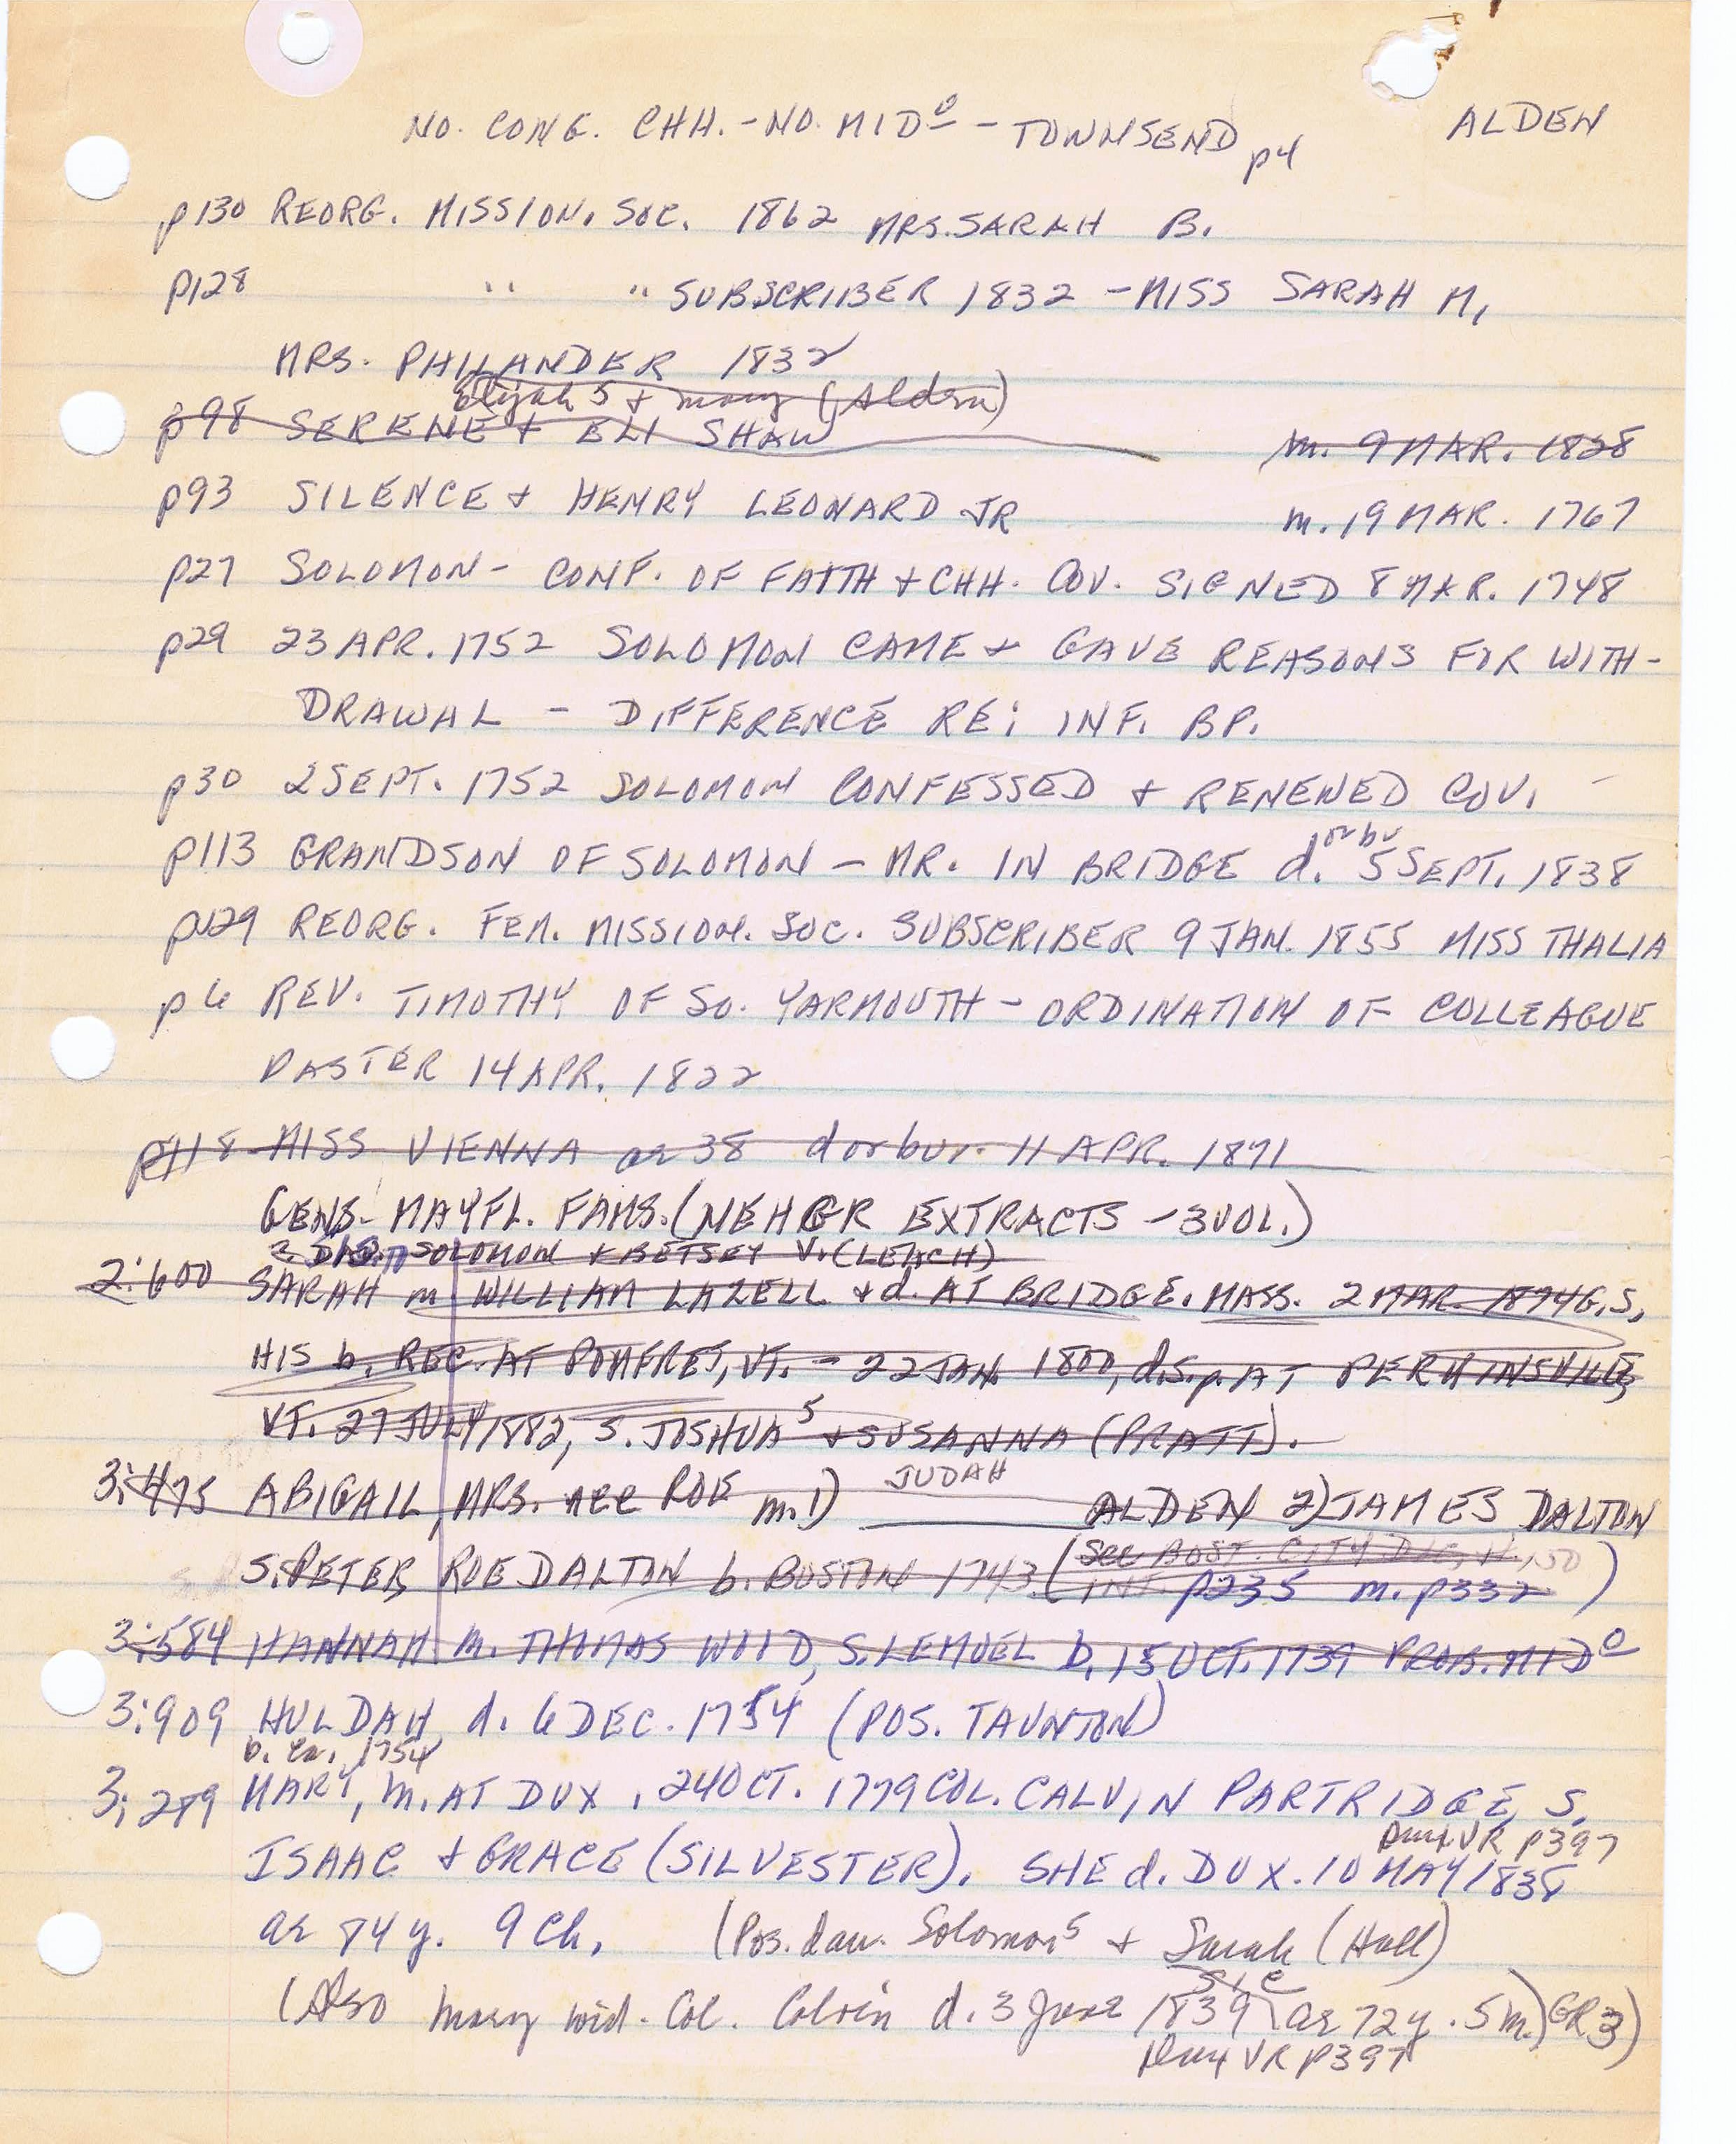 NO. CONG. CHH. - NO. MIDO - TOWNSEND p4 ALDEN
p130 REORG. MISSION. SOC. 1862 MRS. SARAH B.
p128 " " SUBSCRIBER 1832 - MISS SARAH M.
MRS. PHILANDER 1832
Elijah 5 + Mary (Alden)
p98 SERENE + ELI SHAW m. 9 MAR. 1828
p93 SILENCE + HENRY LEONARD JR m. 19 MAR. 1767
p27 SOLOMON - CONF. OF FAITH + CHH. COV. SIGNED 8 MAR. 1748
p29 23 APR. 1752 SOLOMON CAME + GAVE REASONS FOR WITH-
DRAWAL - DIFFERENCE RE: INF. BP.
p30 2 SEPT. 1752 SOLOMON CONFESSED + RENEWED COV.
or bu
p113 GRANDSON OF SOLOMON - MR. IN BRIDGE d. 5 SEPT. 1838
p129 REORG. FEM. MISSION. SOC. SUBSCRIBER 9 JAN. 1855 MISS THALIA
p6 REV. TIMOTHY OF SO. YARMOUTH - ORDINATION OF COLLEAGUE
PASTER 14 APR. 1822
p118 MISS VIENNA ae 38 d or bur. 11 APR. 1871
GENS. MAYFL. FAMS. (NEHGR EXTRACTS - 3 VOL.)
SOLOMON + BETSEY V. (LEACH)
2:600 SARAH m. WILLIAM LAZELL + d. AT BRIDGE. MASS. 2 MAR. 1874 G.S,
HIS b. REC. AT POMFRET, VT. - 22 JAN. 1800, d.s.p. AT PERKINSVILLE
VT. 27 JULY 1882, S. JOSHUA 5 + SUSANNA (PRATT).
3:475 ABIGAIL, MRS. nee ROE m. 1) JUDAH ALDEN 2) JAMES DALTON
See BOST. CITY DOC.
S. PETER ROE DALTON b. BOSTON 1743 (INT. p235 m. p332)
3:584 HANNAH m. THOMAS WOOD, S. LEMUEL b. 15 OCT. 1739 PROB. MIDO
3:909 HULDAH d. 6 DEC. 1754 (POS. TAUNTON)
b. ca. 1754
3:279 MARY, m. AT DUX, 24 OCT. 1779 COL. CALVIN PARTRIDGE, S.
Dux VR p397
ISAAC + GRACE (SILVESTER). SHE d. DUX. 10 MAY 1838
ae 84 y. 9 Ch. (Pos. dau. Solomon 5 + Sarah (Hall)
sic
(Also Mary wid. Col. Calvin d. 3 June 1839 (ae 72 y. 5 m.) GR3)
Dux VR p397